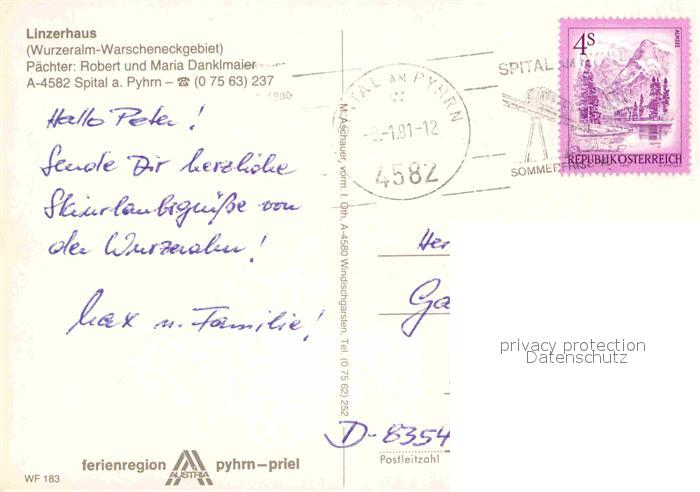 Linzerhaus
(Wurzeralm-Warscheneckgebiet)
Pächter: Robert und Maria Danklmaier
A-4582 Spital a. Pyhrn – ☎ (0 75 63) 237
Hallo Peter!
Sende Dir herzliche
Skiurlaubsgrüße von
der Wurzeralm!
Max u. Familie!
ferienregion AUSTRIA pyhrn–priel
WF 183
M. Aschauer, vorm. I. Oth, A-4580 Windischgarsten, Tel. (0 75 62) 252
SPITAL AM PYHRN
-8.-1.81-12
4582
SPITAL AM
SOMMERFRISC
4S
ALMSEE
REPUBLIK ÖSTERREICH
Her
Ga
privacy protection
Datenschutz
D-8354
Postleitzahl